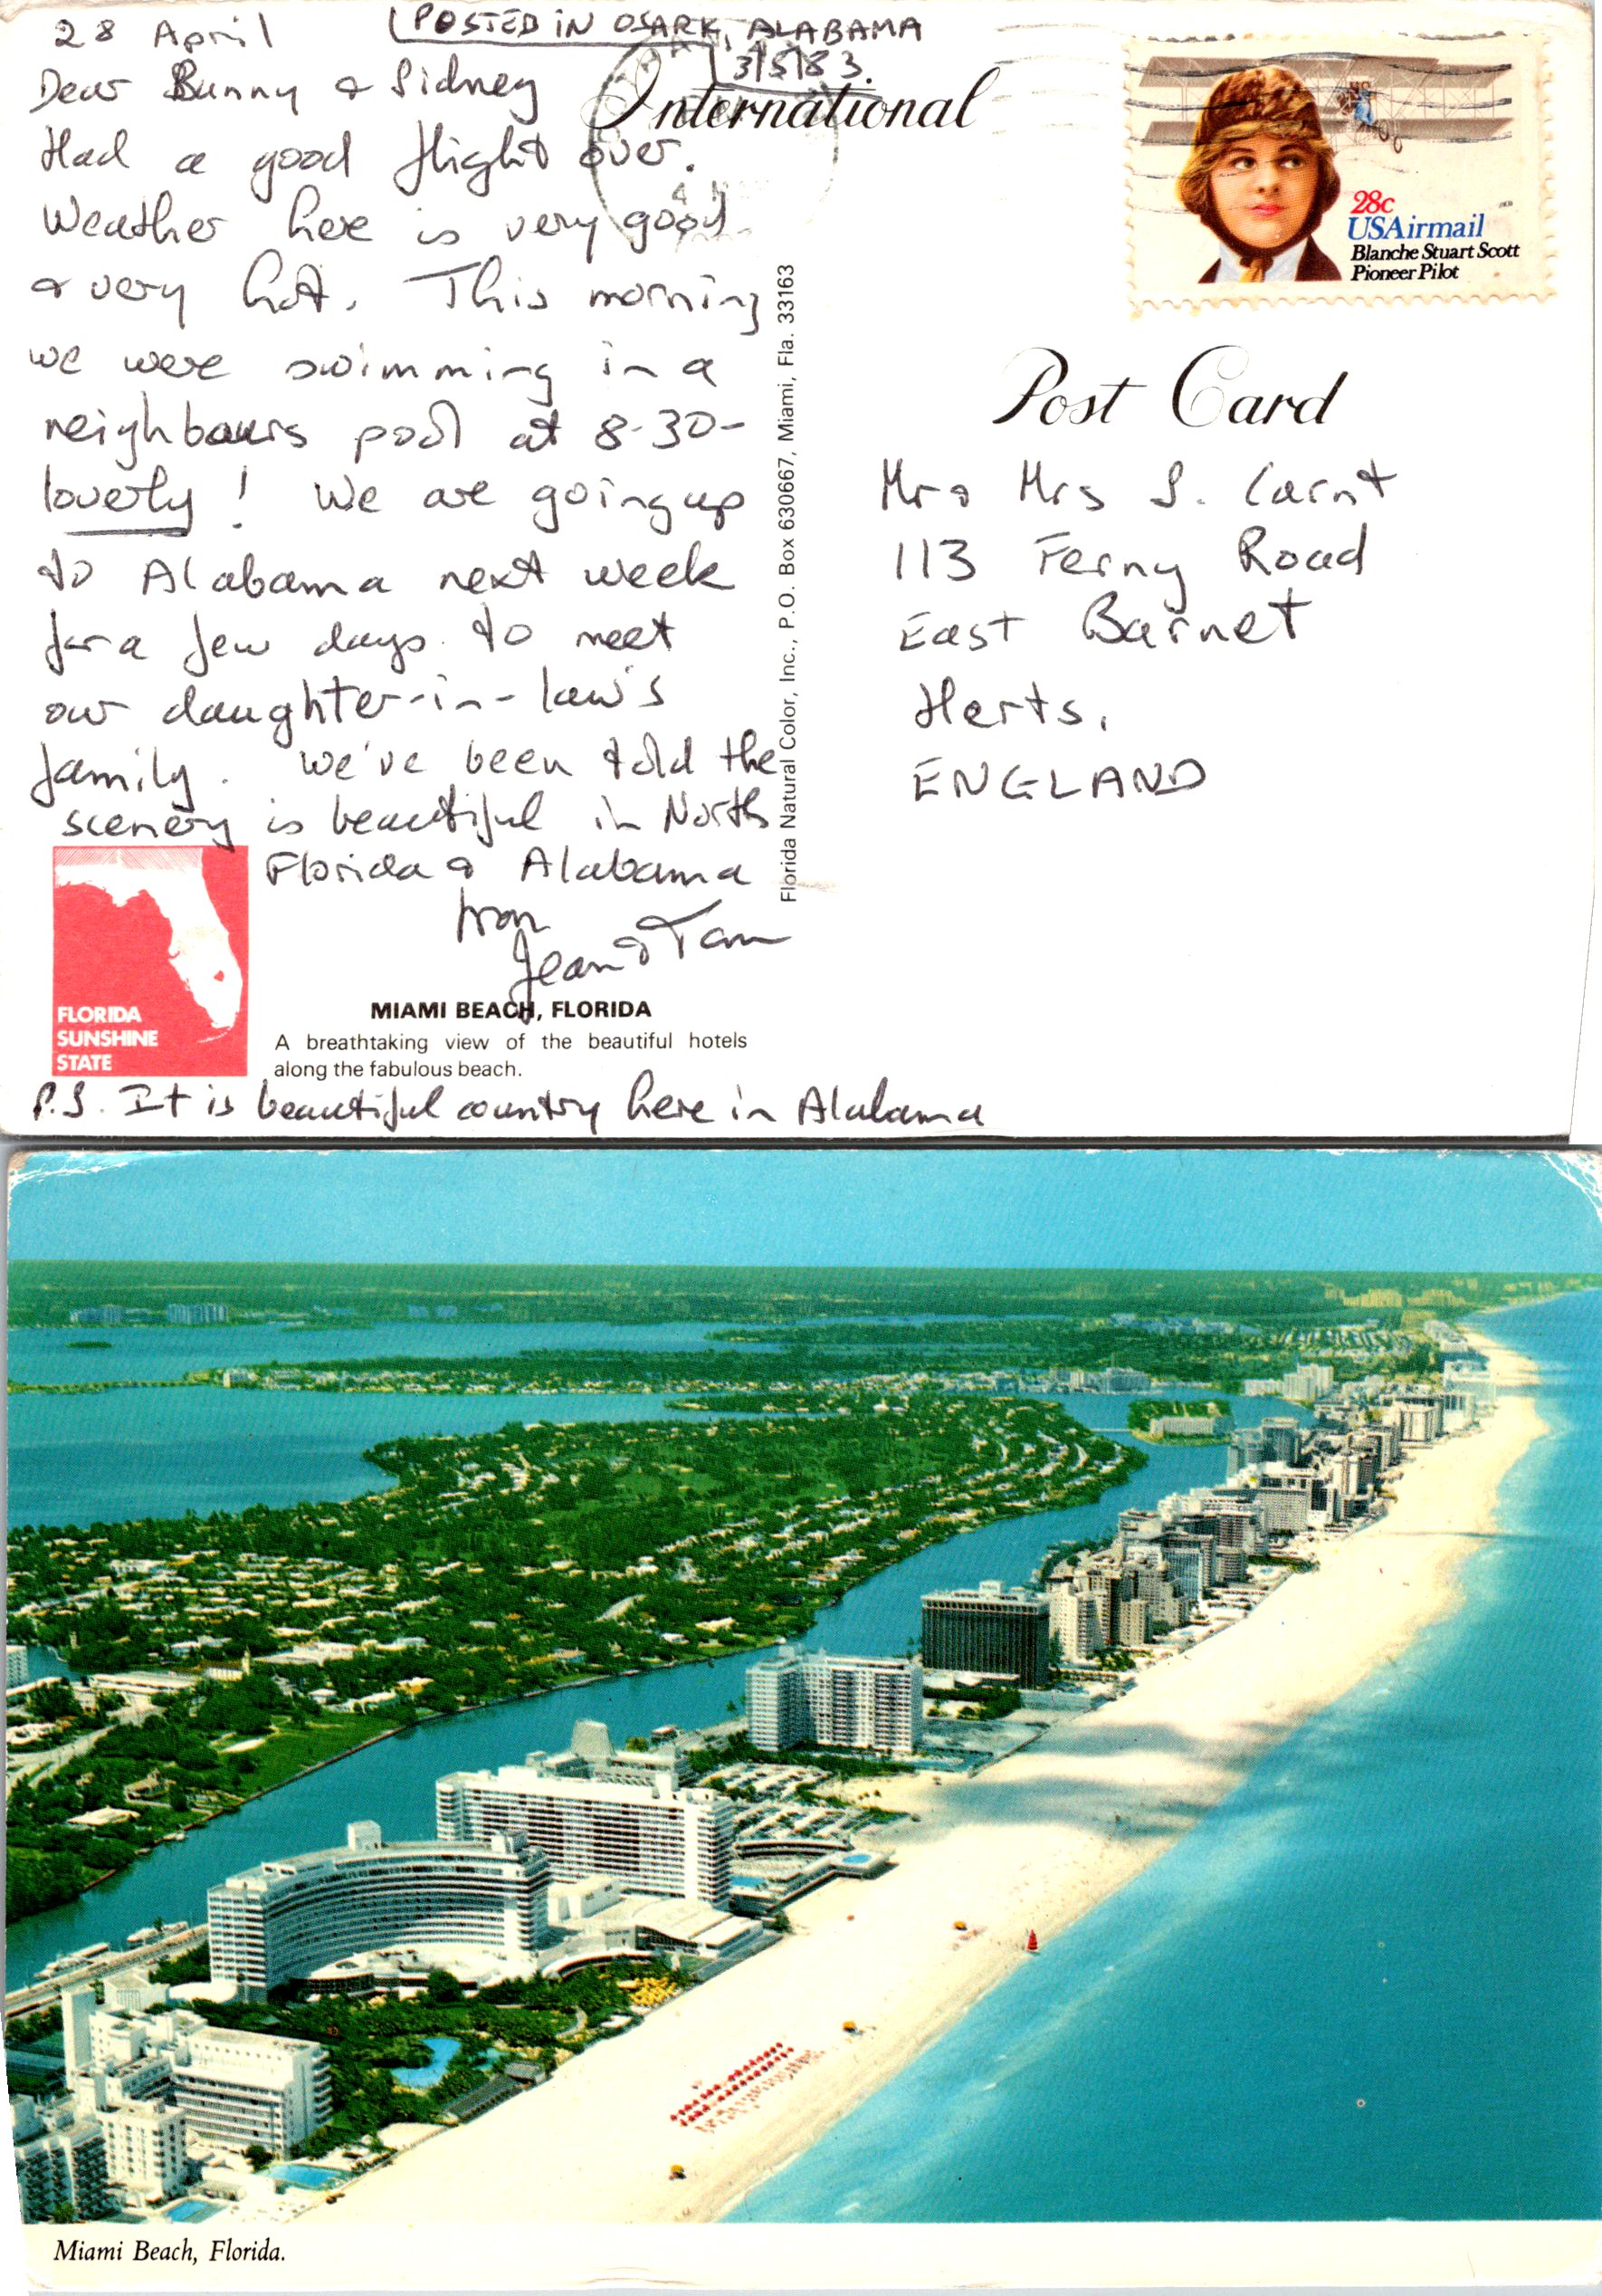 28 April
POSTED IN OSARK, ALABAMA
3/5/83.
Dear Bunny & Sidney
Had a good flight over.
Weather here is very good
& very hot. This morning
we were swimming in a
neighbours pool at 8-30-
loverly! We are going up
to Alabama next week
for a few days to meet
our daughter-in-law's
family. We've been told the
scenery is beautiful in North
Florida & Alabama
from
Jean & Tom
FLORIDA
SUNSHINE
STATE
MIAMI BEACH, FLORIDA
A breathtaking view of the beautiful hotels
along the fabulous beach.
P.S. It is beautiful country here in Alabama
Florida Natural Color, Inc., P.O. Box 630667, Miami, Fla. 33163
International
28c
USAirmail
Blanche Stuart Scott
Pioneer Pilot
Post Card
Mr & Mrs S. Carnt
113 Ferny Road
East Barnet
Herts,
ENGLAND
Miami Beach, Florida.